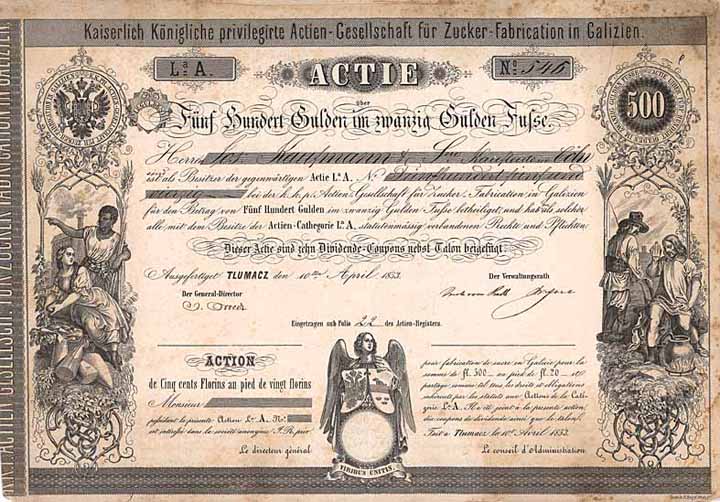 Kaiserlich Königliche privilegirte Actien-Gesellschaft für Zucker-Fabrication in Galizien.
La A.
ACTIE
No 546
500
über
Fünf Hundert Gulden im zwanzig Gulden Fusse.
Herren Jos. Kaufmann & Kaufleute in Cöln
ist als Besitzer der gegenwärtigen Actie La A. No
bei der k. k. p. Actien Gesellschaft für Zucker-Fabrication in Galizien
für den Betrag von Fünf Hundert Gulden im zwanzig Gulden Fusse betheiligt, und hat als solcher
alle, mit dem Besitze der Actien-Cathegorie La A. statutenmässig verbundenen Rechte und Pflichten.
Dieser Actie sind zehn Dividende-Coupons nebst Talon beigefügt.
Ausgefertiget TŁUMACZ den 10ten April 1853.
Der Verwaltungsrath
Der General-Director
Eingetragen sub Folio 22 des Actien-Registers.
ACTION
de Cinq cents Florins au pied de vingt florins
Monsieur
possédant la présente Action La A. No
est intéressé dans la société anonyme I. R. priv.
Le directeur général
VIRIBUS UNITIS
pour fabrication de sucre en Galicie pour la
somme de fl. 500 au pied de fl. 20
partage comme tel tous les droits et obligations
inhérents par les statuts aux Actions de la Caté-
gorie La A. Il a été joint à la présente action,
dix coupons de dividende ainsi que le talon.
Fait à Tlumacz le 10 Avril 1853.
Le conseil d'Administration